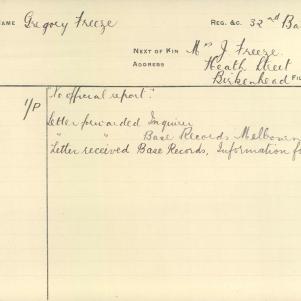 NAME Gregory Freeze REG. &C. 32nd Ba
NEXT OF KIN Mrs J. Freeze.
ADDRESS Heath Street
Birkenhead FIL
1/P "No official report".
Letter forwarded Inquirer
" " Base Records Melbourn
Letter received Base Records, Information fo